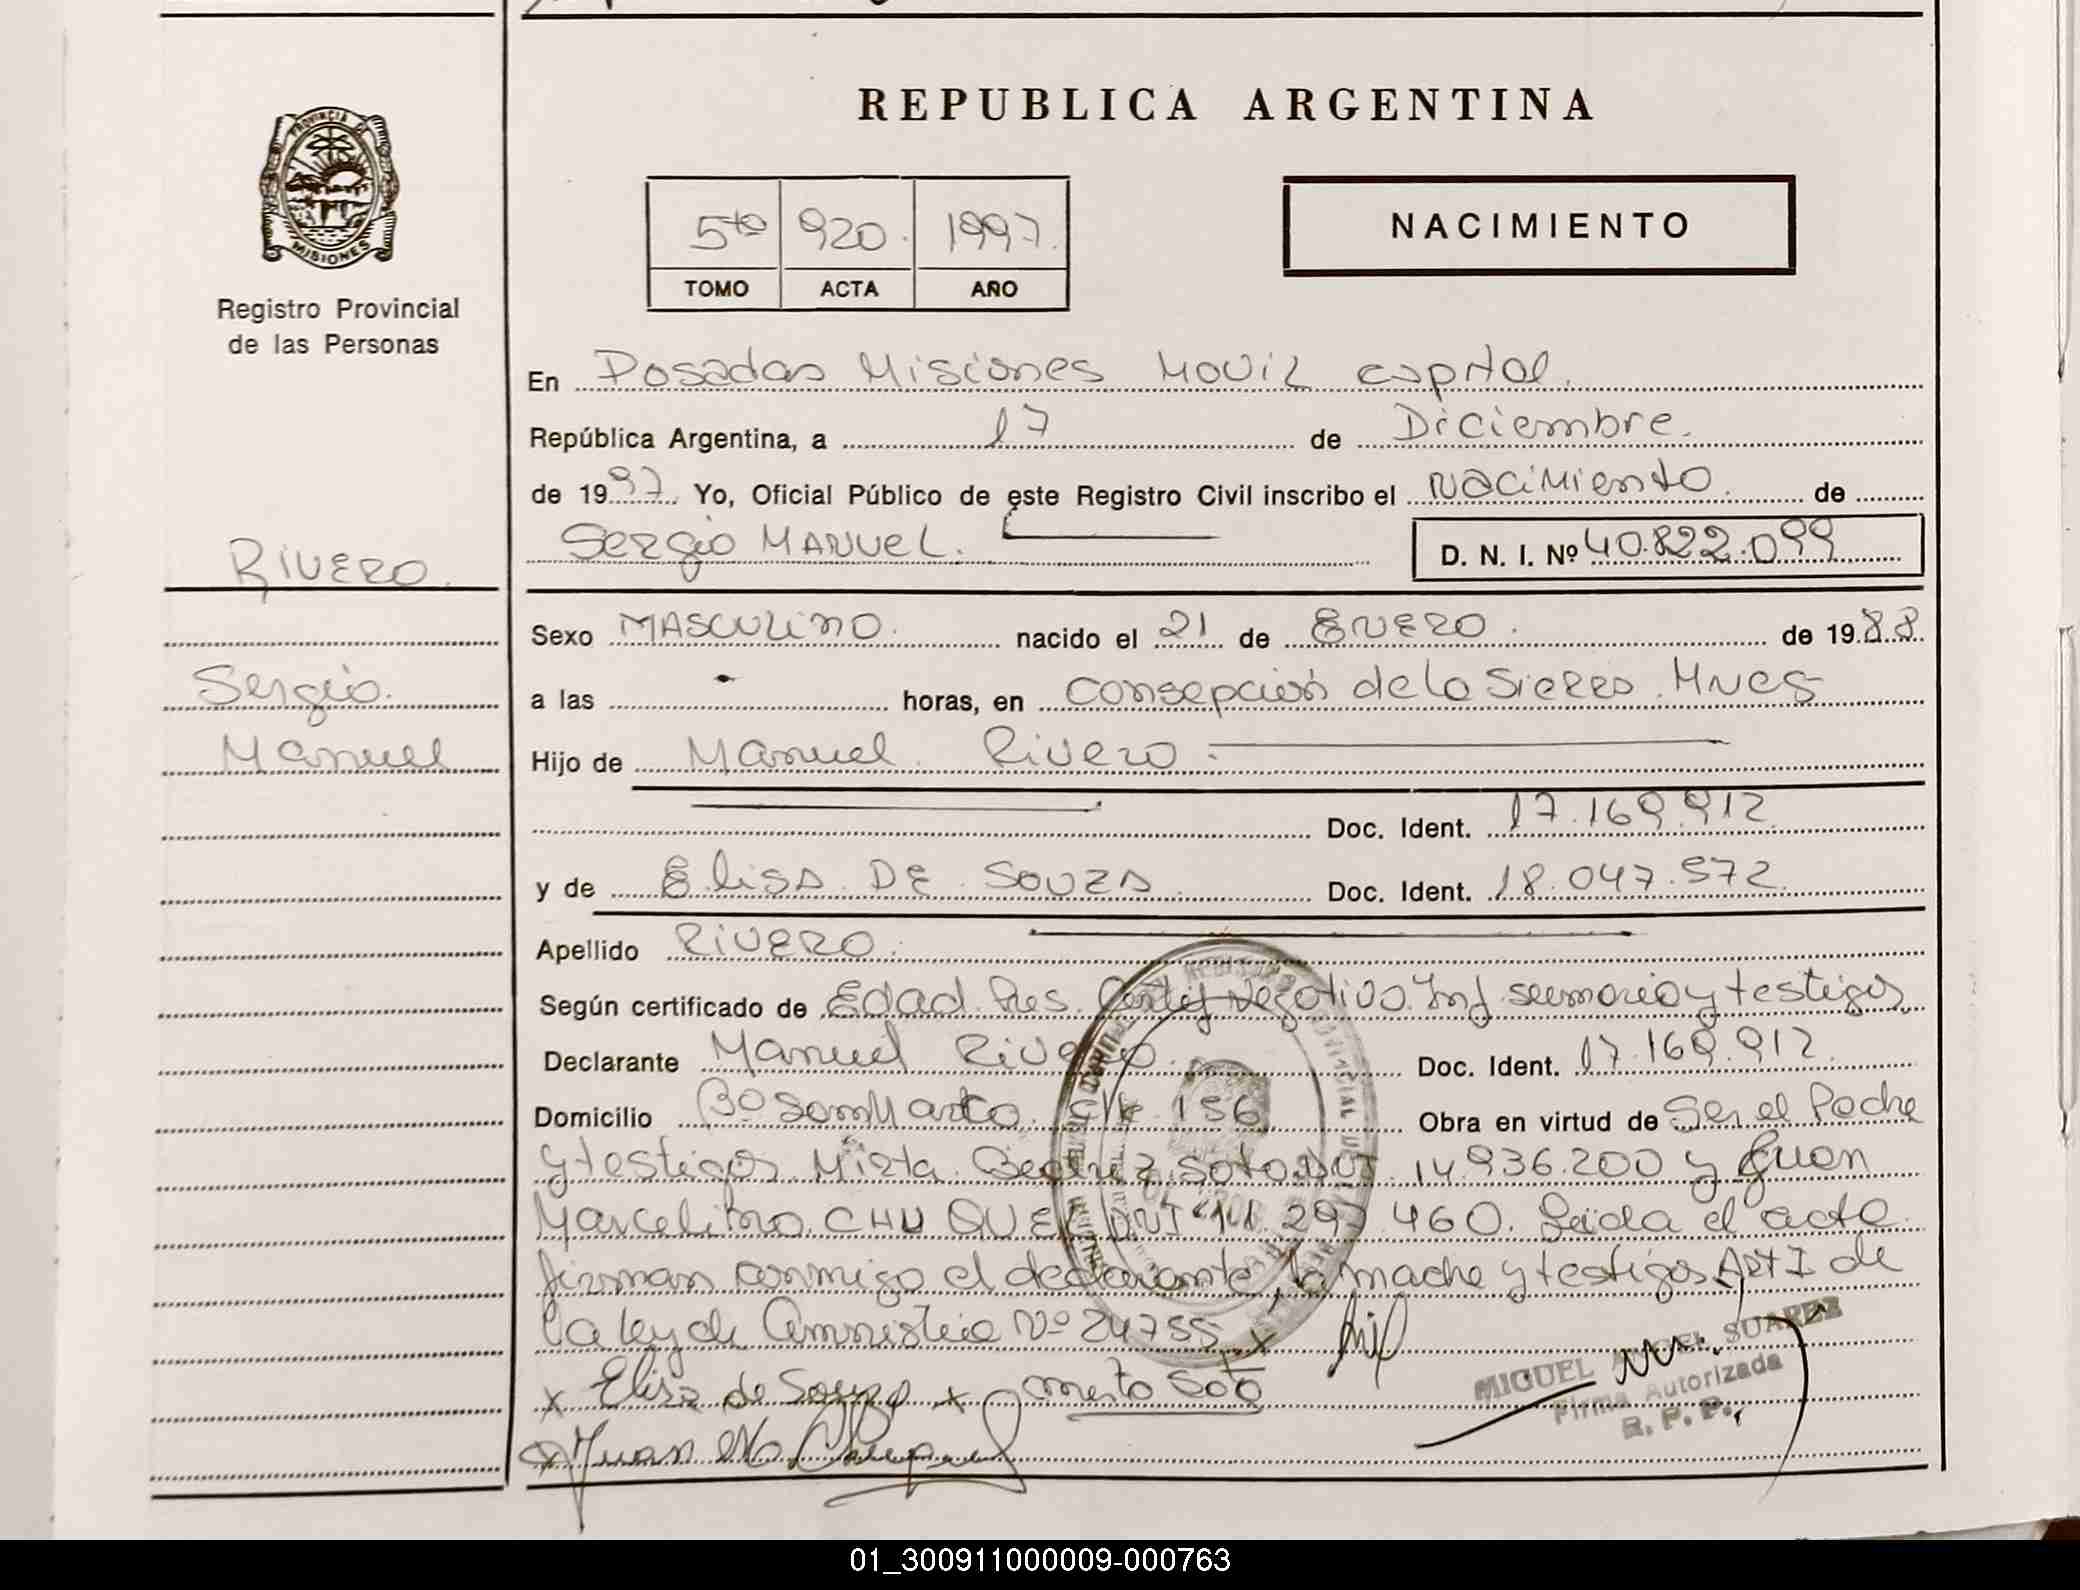 REPUBLICA ARGENTINA
PROVINCIA DE
MISIONES
Registro Provincial
de las Personas
5to 920. 1997.
TOMO ACTA AÑO
NACIMIENTO
En Posadas Misiones Movil capital.
República Argentina, a 17 de Diciembre.
de 1997. Yo, Oficial Público de este Registro Civil inscribo el Nacimiento. de
Sergio MANUEL.
D. N. I. Nº 40.822.099
RIVERO.
Sergio.
Manuel
Sexo MASCULINO. nacido el 21 de ENERO. de 1988.
a las horas, en Consepción de la Sierra. Mnes
Hijo de Manuel Rivero.
Doc. Ident. 17.169.912
y de Elisa DE SOUZA Doc. Ident. 18.047.572
Apellido RIVERO.
Según certificado de Edad Pres. Certif Negativo. Inf sumario y testigos
Declarante Manuel Rivero. Doc. Ident. 17.169.912.
Domicilio Bº San Marco. 156 Obra en virtud de Ser el Padre
y testigos. Mirta. Beatriz. Soto. DNI. 14.936.200 y Juan
Marcelino. CHUQUEL DNI 11.297.460. Leida el acta
firman conmigo el declarante, la madre y testigos. Art I de
la ley de Amnistia Nº 24755 x
x Elisa de Souza x Mirta Soto
x Juan
MIGUEL ANGEL SUAREZ
Firma Autorizada
R. P. P.
01_300911000009-000763